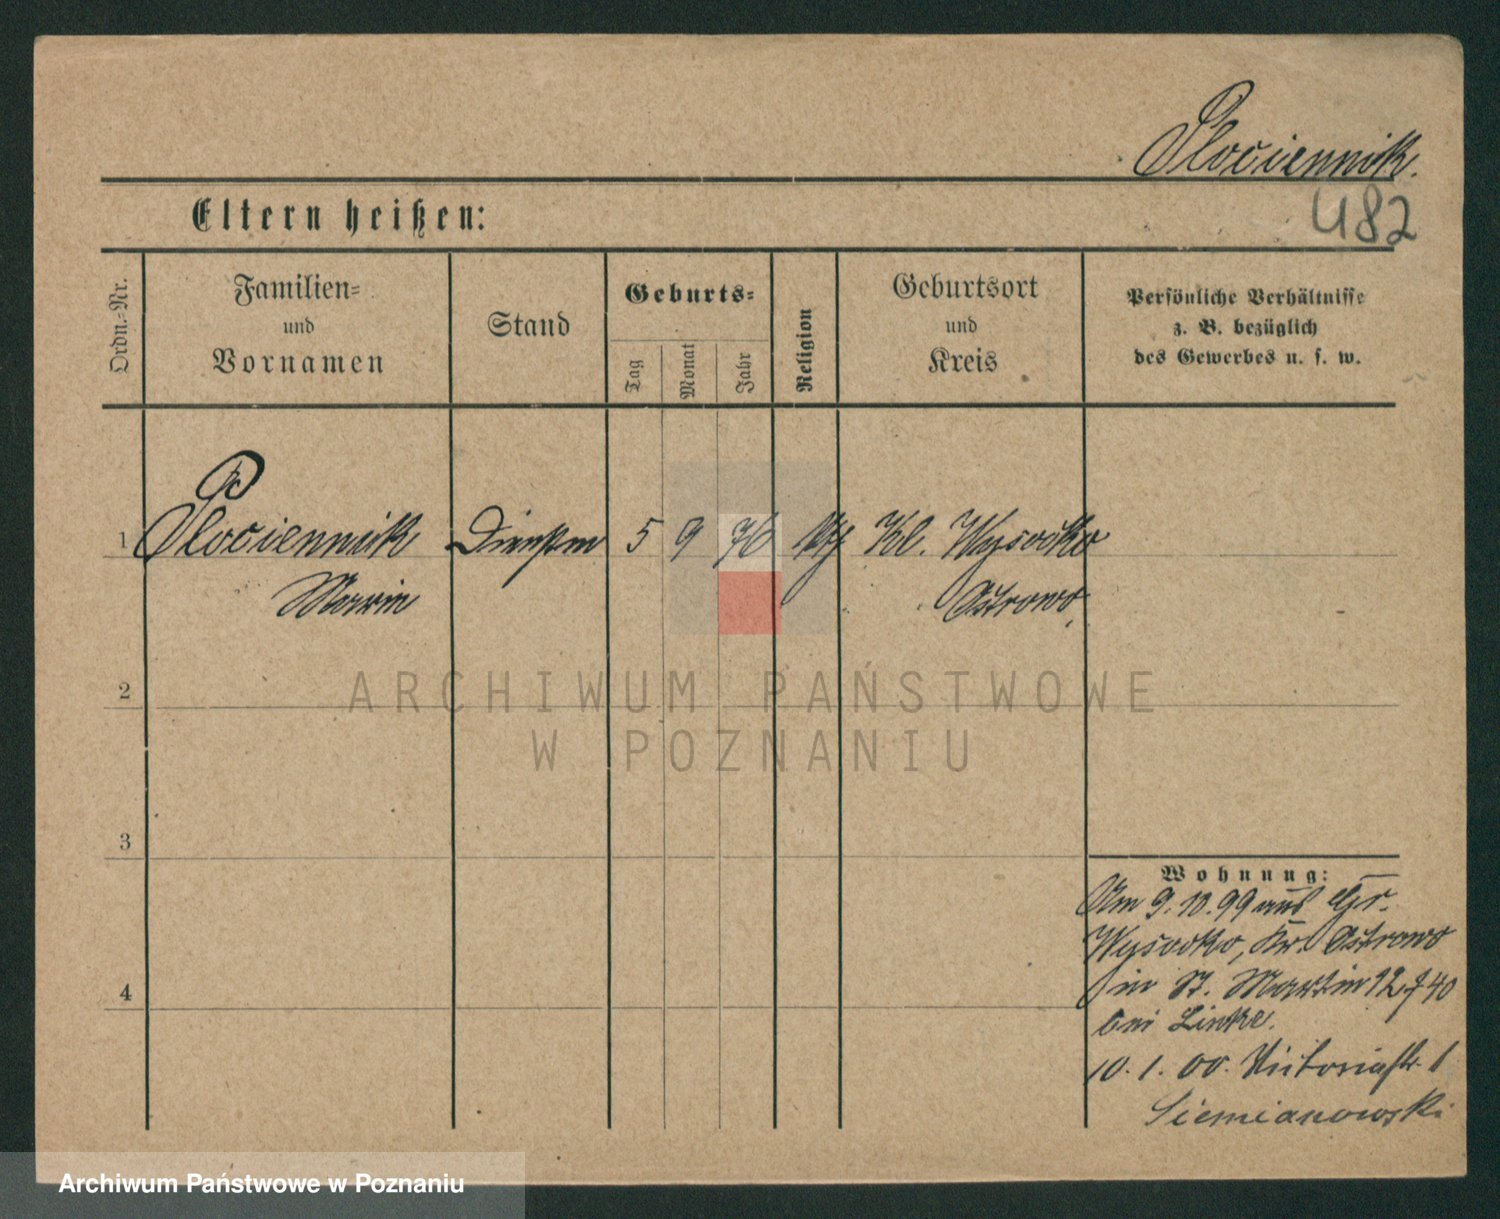 Plociennik.
482
Eltern heißen:
Ordn.-Nr.
Familien-
und
Vornamen
Stand
Geburts-
Tag
Monat
Jahr
Religion
Geburtsort
und
Kreis
Persönliche Verhältnisse
z. B. bezüglich
des Gewerbes u. s. w.
1 Plociennik 5 9 76 Kl. Wysocko
Ostrowo.
2
3
4
Wohnung:
Am 9.10.99 aus Gr.
Wysocko, Kr. Ostrowo
in St. Martin
bei Linke.
10. 1. 00. Victoriastr. 1
Siemianowski
ARCHIWUM PAŃSTWOWE
W POZNANIU
Archiwum Państwowe w Poznaniu